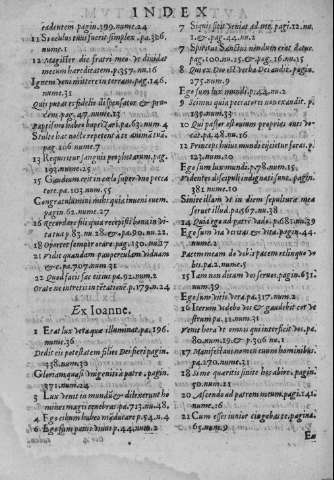 INDEX
cadentem pagin. 399. nume. 24
11 Si oculus tuus fuerit simplex . pa. 326,
nume. 1
12 Magister dic fratri meo vt diuidat
mecum hæreditatem. p. 357. nu. 16
Ignem veni mittere in terram. pag. 146.
nume. 31
Qui putas est fidelis dispensator & pru
dens pag. 47. nume. 13
Baptismo habeo baptizari. pag. 63 num. 4
Stulte hac nocte repetent à te animã tuã.
pag. 206 nume. 7
13 Requiretur sanguis prophetarum. pag.
193. num. 25
15 Gaudium erit in cælo super vno pecca
tore. pa. 103. num. 55
Congratulamini mihi quia inueni ouem.
pagin 62. nume. 27
16 Recordare fili quia recepisti bona in vi-
tatua. p 83. nu. 28. & pa. 90. nu. 22.
18 Oportet semper orare. pag. 130. nu. 17
21 Vidit quandam pauperculam viduam
& ca. pa. 707. num. 31
22 Quod facis fac citius pa. 92. num. 2
Orate ne intretis in tẽtatione. p. 179. n. 24
Ex Ioanne.
1 Erat lux vera quæ illuminat. pa. 196.
num. 36
Dedit eis potestatem filios Dei fieri pagin.
358. num. 30
Gloriam quasi vnigeniti à patre . pagin.
371. num. 24
3 Lux venit in mundũ & dilexerunt ho
mines magis tenebras. pa. 713. nu. 48,
4 Ego cibum habeo mãducare p. 54. nu. 4
6 Ego sum panis viuus p. 44. num. 2
7 Siquis sitit veniat ad me. pagin. 12. nu.
1. & pag. 44. nume. 2
7 Spiritus Sanctus nondum erat datus.
pag. 100. nu. 15. & pag. 16. nu. 15
8 Qui ex Deo est verba Dei audit. pagin
275. num. 9
Ego sum lux mundi. p. 42. nu. 2
9 Scimus quia peccatores non exaudit. p.
193. num. 31
10 Qui pastor est ouium proprias oues vo-
cat. pa. 48. nu. 16
12 Princeps huius mundi eijcietur foras. p.
123. num. 10
Ego sum lux mundi. p. 78. num. 15.
Pridentes discipuli indignati sunt. pagin,
381 num. 10
Sinite illam vt in diem sepultura mea
seruet illud. pa. 567. nu. 38
14 Quia ego ad patrem vado. pa. 681. nu 39
Ego sum via veritas & vita. pag. 44.
nume. 2
Pacem meam do vobis pacem relinquo vo
bis. pa. 2. nume. 5
15 Iam non dicam vos seruos. pagin. 631.
num. 39
Ego sum vitis vera pa. 317. num. 2
16 Iterum videbo vos & gaudebit cor ve
strum pa. 12. num. 2
Venit hora vt omnis qui interficit vos. pa.
90. num. 21. & p. 306. nu. 1
17 Manifestaui nomen tuum hominibus. p.
94. nu. 270. num. 20
18 Sime quæritis sinite hos abire. pagin.
50. num. 21
20 Ascendo ad patrem meum. pagin. 141.
nume. 16
21 Cum esses iunior cingebas te. pagin.
65. num. 9
Ex